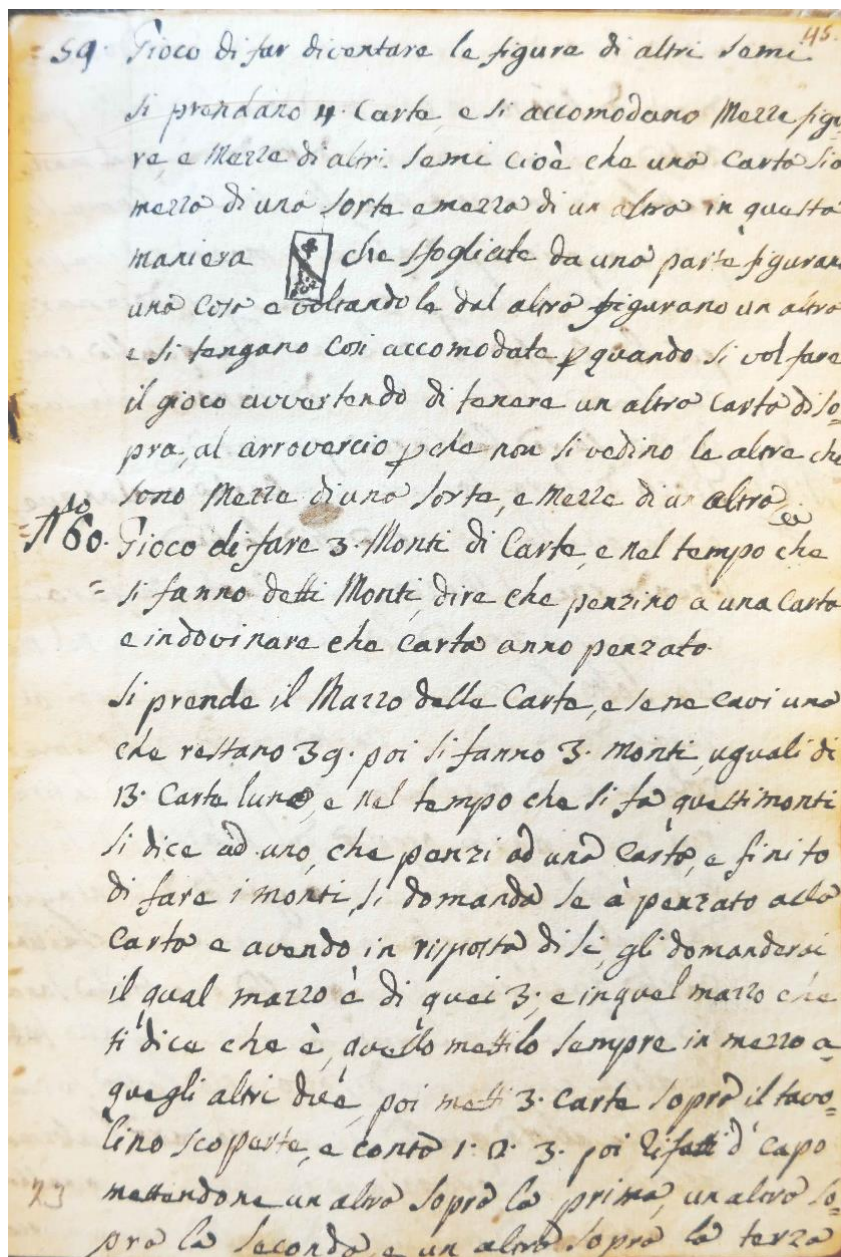 45.
= 59. Gioco di far diventare le figure di altri semi
Si prendano 4. Carte, e si accomodano Mezze figu=
re, e Mezze di altri semi cioè che una Carta sia
mezza di una sorte e mezza di un altra in questa
maniera che sfogliate da una parte figurano
una cosa e voltandole dal altra figurano un altra
e si tengano così accomodate p quando si vol fare
il gioco avvertendo di tenere un altra Carta di so=
pra, al arrovercio p che non si vedino le altre che
sono Mezze di una sorte, e Mezze di un altra
= 60. Gioco di fare 3. Monti di Carte, e nel tempo che
= si fanno detti Monti, dire che penzino a una Carta
e indovinare che Carta anno penzato.
Si prende il Mazzo delle Carte, e se ne cavi una
che restano 39. poi si fanno 3. monti, uguali di
13. Carte luno, e nel tempo che si fa questi monti
si dice ad uno, che penzi ad una Carta, e finito
di fare i monti, si domanda se à penzato alla
Carta e avendo in risposta di si, gli domanderai
il qual mazzo è di quei 3; e in quel mazzo che
ti dice che è, quello mettilo sempre in mezzo a
quegli altri due, poi metti 3. Carte sopra il tavo=
lino scoperte, e conta 1. 2. 3. poi Rifatti d' Capo
mettendone un altra sopra la prima, un altra so=
pra la seconda, e un altra sopra la terza